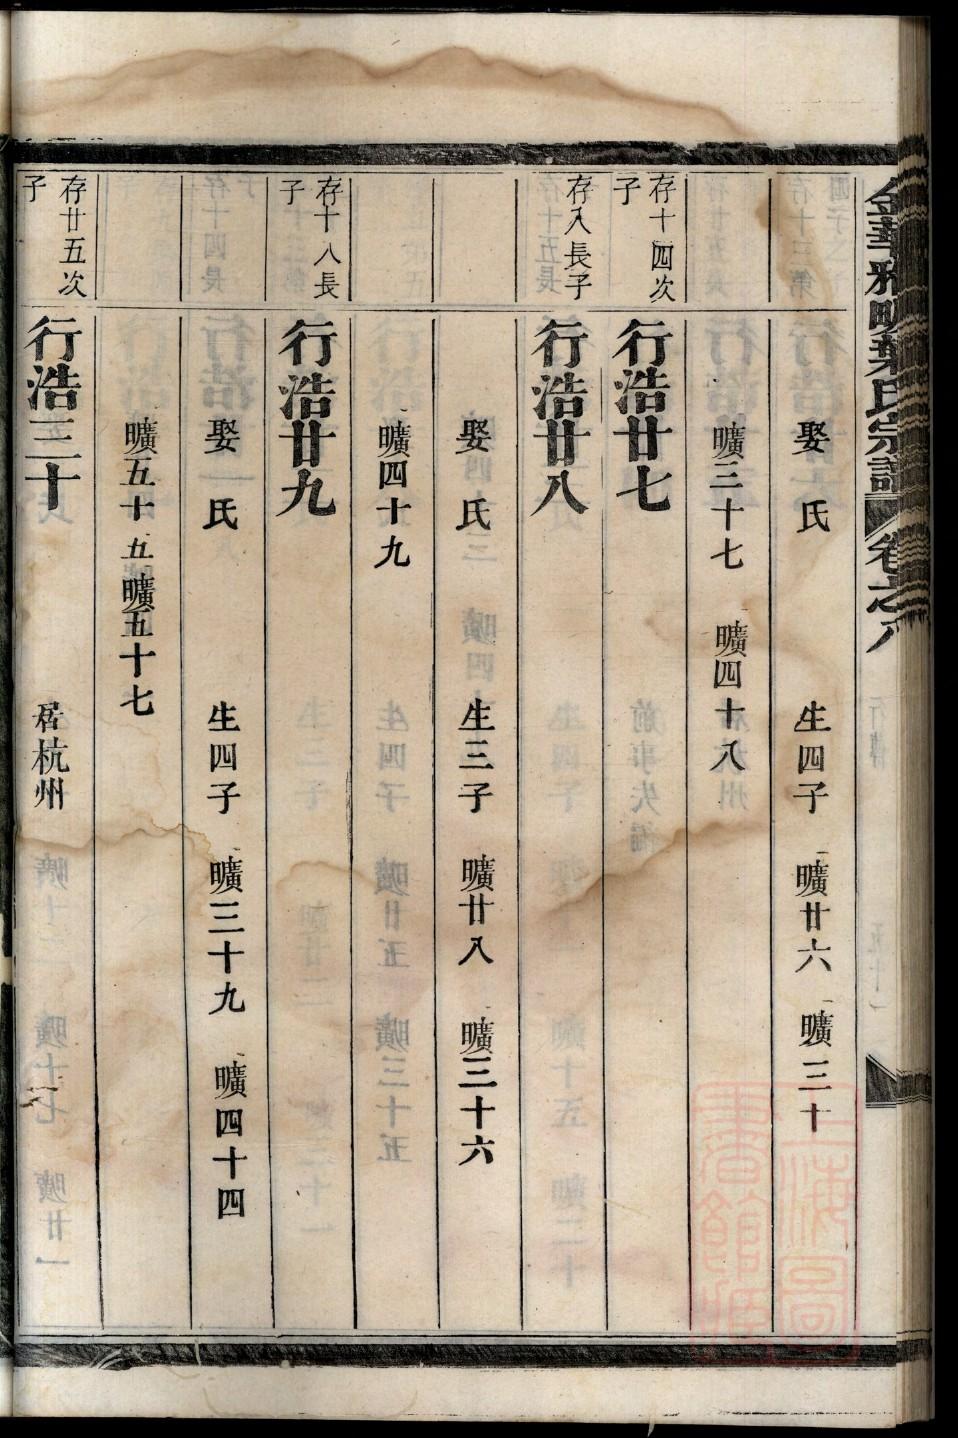 金華雅畈葉氏宗譜 卷之八
娶 氏 生四子 曠廿六 曠三十
曠三十七 曠四十八
存十四次子
行浩廿七
存八長子
行浩廿八
娶 氏 生三子 曠廿八 曠三十六
曠四十九
存十八長子
行浩廿九
娶 氏 生四子 曠三十九 曠四十四
曠五十五 曠五十七
存廿五次子
行浩三十 居杭州